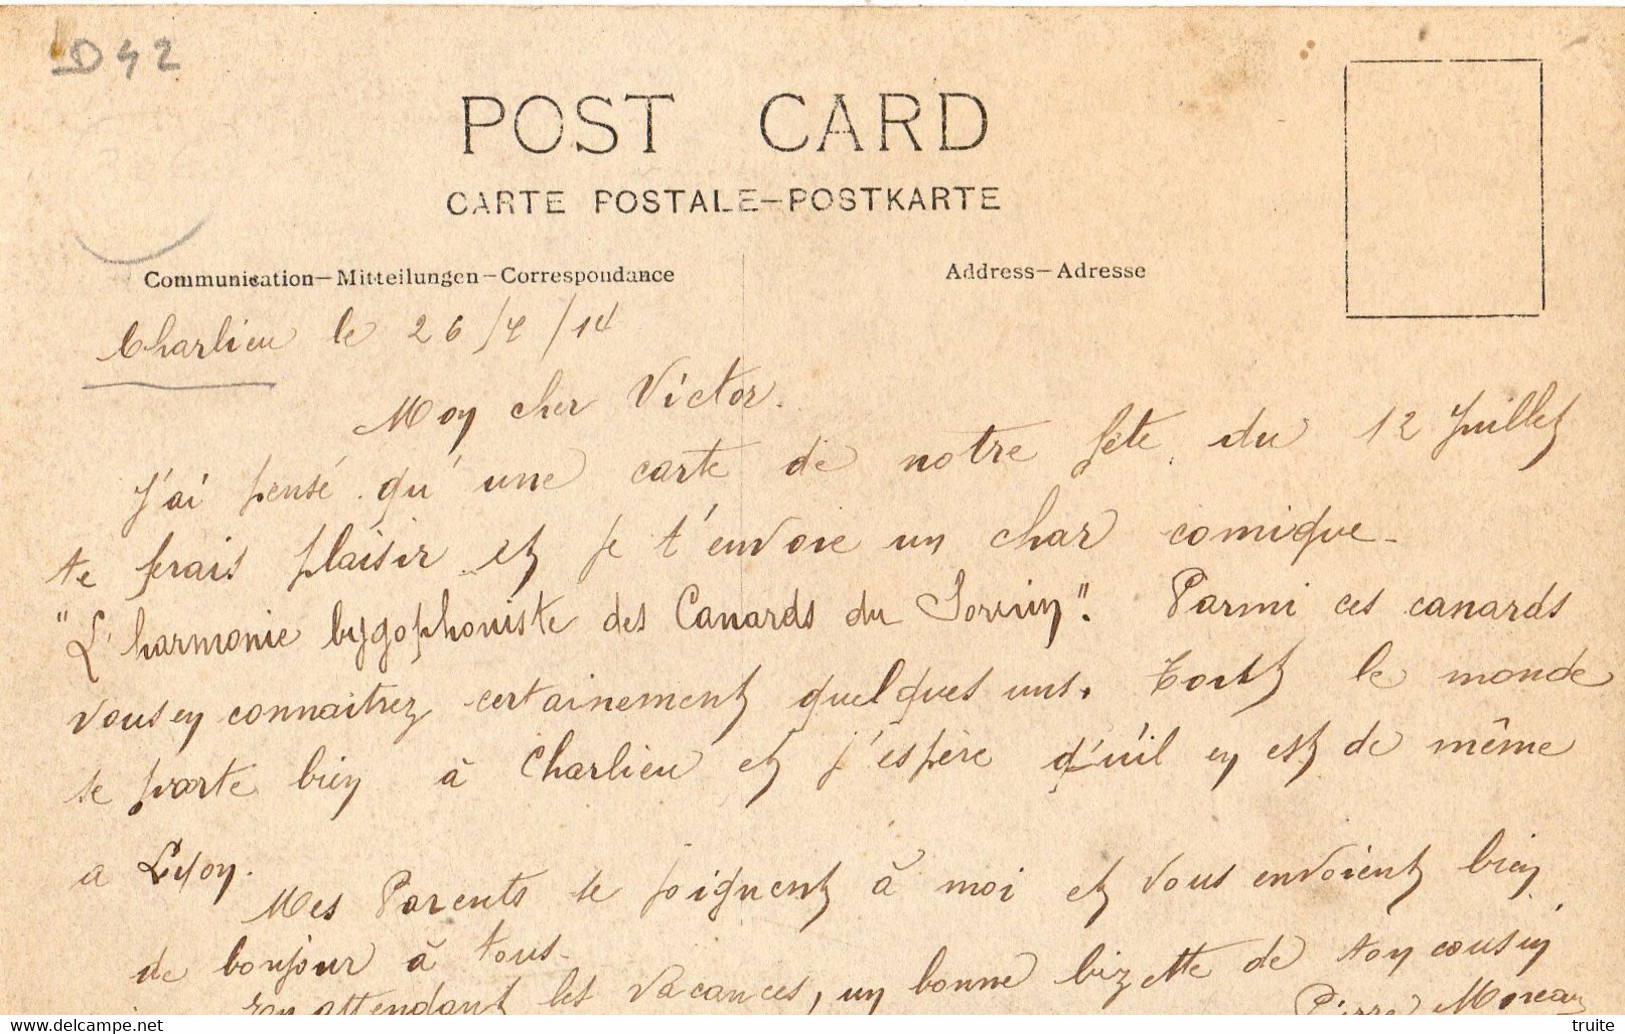 D42
POST CARD
CARTE POSTALE—POSTKARTE
Communication—Mitteilungen—Correspondance
Address—Adresse
Charlieu le 26/7/14
Mon cher Victor.
J'ai pensé qu'une carte de notre fête du 12 Juillet
te ferais plaisir et je t'envoie un char comique.
"L'harmonie bygophoniste des Canards du Sornin". Parmi ces canards
vous en connaitrez certainement quelques uns. Tout le monde
se porte bien à Charlieu et j'espère qu'il en est de même
a Lyon.
Mes Parents se joignent à moi et vous envoient bien
de bonjour à tous.
En attendant les vacances, un bonne bizette de ton cousin
Pierre Moreau
https://www.delcampe.net
truite